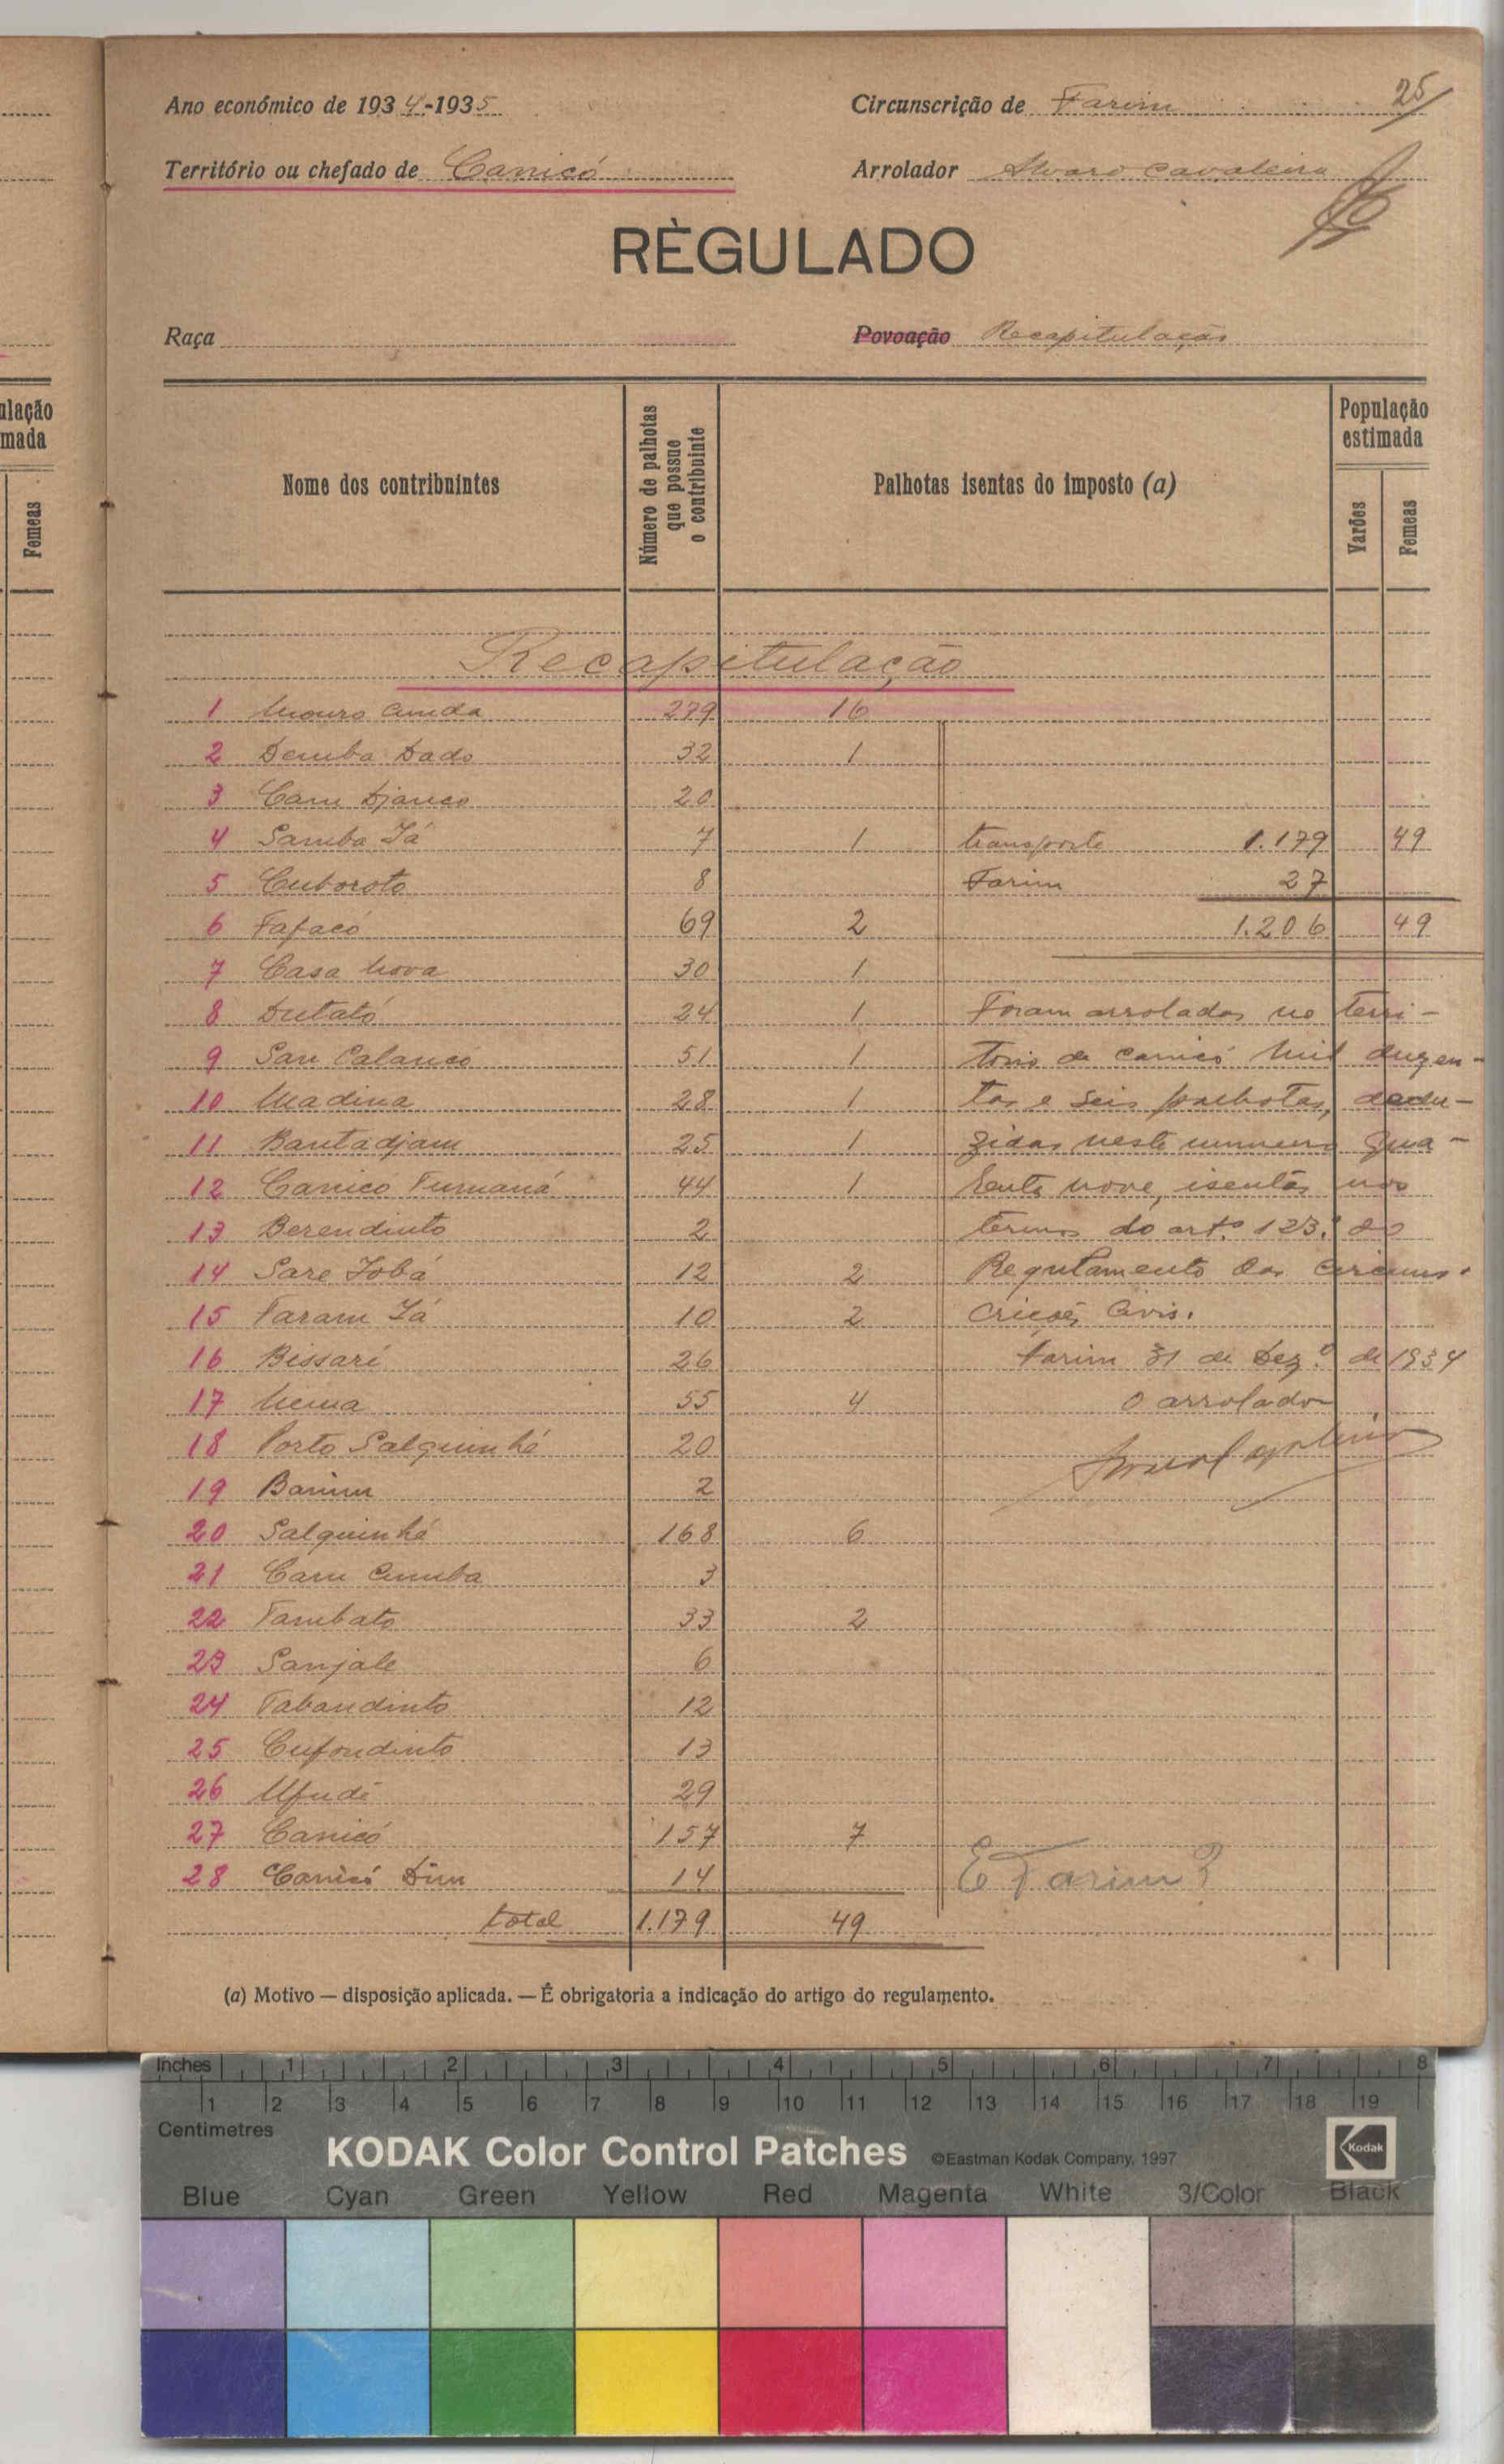 25
Ano económico de 1934-1935
Circunscrição de Farim
Território ou chefado de Canicó
Arrolador Alvaro Cavaleiro
RÈGULADO
Raça
Povoação Recapitulação
Nome dos contribuintes
Número de palhotas que possue o contribuinte
Palhotas isentas do imposto (a)
População estimada
Varões
Femeas
ulação
mada
Femeas
Recapitulação
1 279 16
2 Demba Dado 32 1
3 20
4 Samba Já 7 1 transporte 1.179 49
5 Cuboroto 8 Farim 27
6 Fafacó 69 2 1.206 49
7 Casa Nova 30 1
8 Dutató 24 1 Foram arrolados no terri-
9 51 1 torio de Canicó Mil duzen-
10 Madina 28 1 tas e seis palhotas, dedu-
11 Bantadjam 25 1 zidas neste numero qua-
12 Canico Tumaná 44 1 renta nove, isentas nos
13 Berendinto 2 termos do artº 123.º do
14 Sare Jobá 12 2 Regulamento das Circuns-
15 Faram Já 10 2 crições Civis.
16 Bissari 26 Farim 31 de Dezº de 1934
17 Nema 55 4 O arrolador
18 Porto Salquinhé 20
19 Banim 2
20 Salquinhé 168 6
21 Cam Cumba 3
22 Tambato 33 2
23 Sanjale 6
24 Tabandinto 12
25 Cufondinto 13
26 29
27 Canicó 157 7
28 Canicó Dim 14 E Farim?
total 1.179 49
(a) Motivo — disposição aplicada. — É obrigatoria a indicação do artigo do regulamento.
Inches 1 2 3 4 5 6 7 8
1 2 3 4 5 6 7 8 9 10 11 12 13 14 15 16 17 18 19
Centimetres
KODAK Color Control Patches ©Eastman Kodak Company, 1997 Kodak
Blue Cyan Green Yellow Red Magenta White 3/Color Black